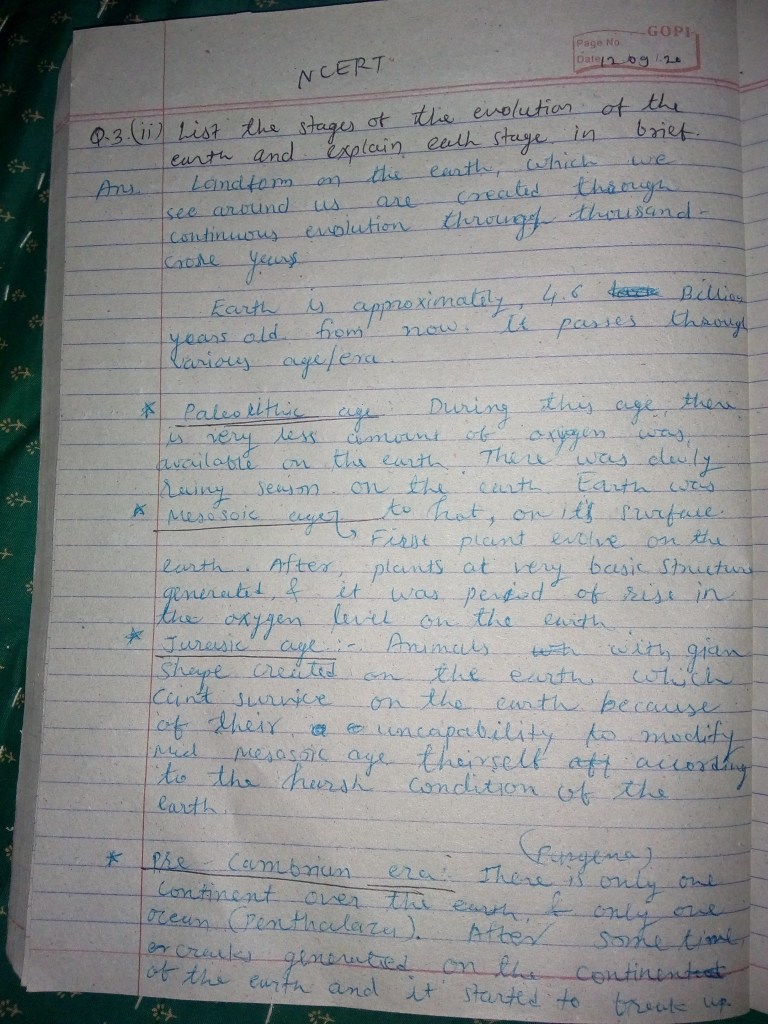 GOPI
Page No.
Date 12 09 20
NCERT
Q.3.(ii) List the stages of the evolution of the
earth and explain each stage in brief.
Ans. Landform on the earth, which we
see around us are created through
continuous evolution through thousand-
crore years
Earth is approximately, 4.6 Billion
years old from now. It passes through
various age/era.
* Paleolithic age: During this age, there
is very less amount of oxygen was,
available on the earth. There was daily
rainy season on the earth. Earth was
* Mesosoic age to hot, on it's surface.
First plant evolve on the
earth. After, plants at very basic structure
generated, & it was period of rise in
the oxygen level on the earth
* Jurasic age:- Animals with gian
shape created on the earth which
can't survive on the earth because
of their uncapability to modify
Mid Mesosoic age theirself according
to the harsh condition of the
earth.
(Pangena)
* Pre-Cambrian era: There is only one
continent over the earth, & only one
ocean (Penthalaza). After some time,
or cracks generated on the continent
of the earth and it started to break up.